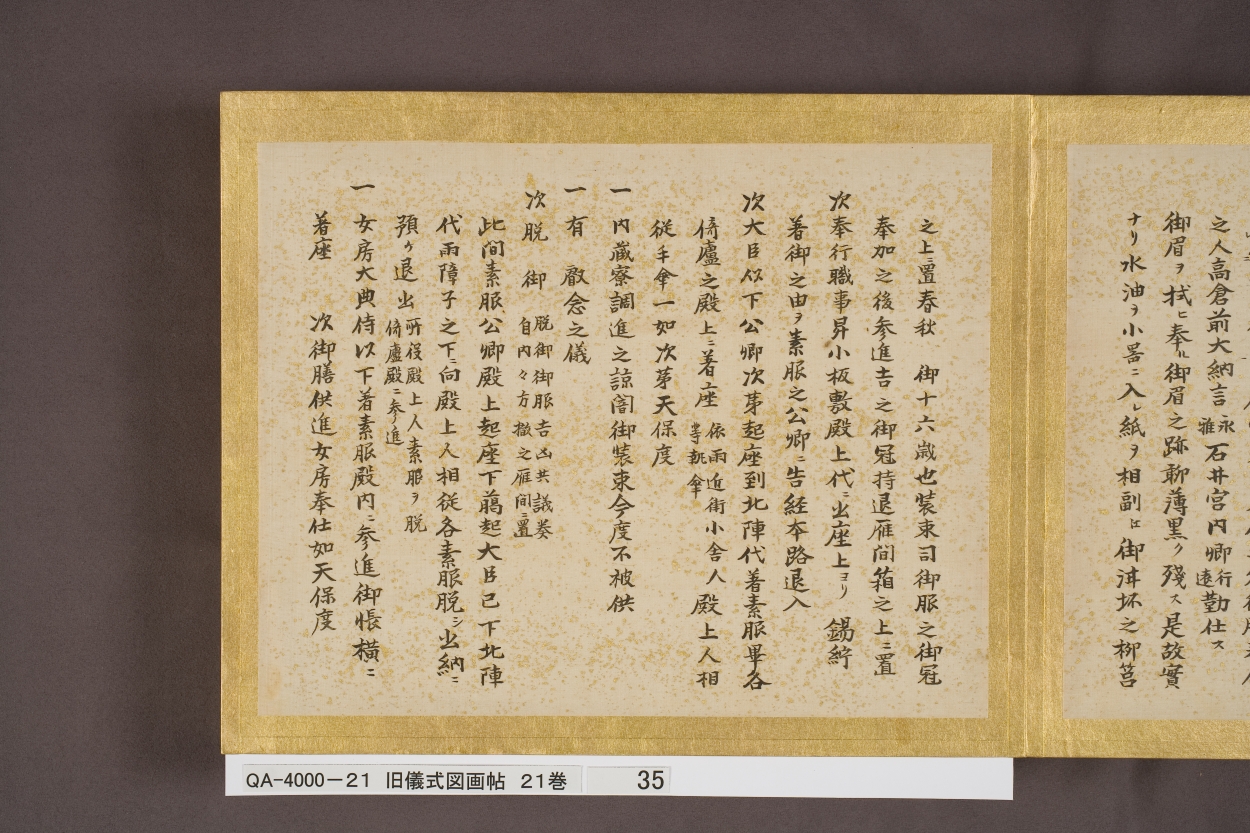 之人高倉前大納言永雅石井宮内卿行遠勤仕ス
御眉ヲ拭ヒ奉ル御眉之跡聊薄黒ク残ス是故實
ナリ水油ヲ小器ニ入レ紙ヲ相副ヱ御泔坏之柳筥
之上ニ置春秋 御十六歳也装束司御服之御冠
奉加之後参進吉之御冠持退雁間箱之上ニ置
次奉行職事昇小板敷殿上代ニ出座上ヨリ 錫紵
着御之由ヲ素服之公卿ニ告経本路退入
次大臣以下公卿次苐起座到北陣代著素服畢各
倚廬之殿上ニ著座 依雨近衛小舎人
䒭執傘 殿上人相
従手傘一如次苐天保度
一 内蔵寮調進之諒闇御装束今度不被供
一 有 叡念之儀
次脱 御 脱御御服吉凶共議奏
自内々方撤之雁間ニ置
此間素服公卿殿上起座下﨟起大臣已下北陣
代雨障子之下ニ向殿上人相従各素服脱シ出納ニ
預ケ退出 所役殿上人素服ヲ脱
倚廬殿ニ参進
一 女房大典侍以下著素服殿内ニ参進御帳横ニ
著座 次御膳供進女房奉仕如天保度
QA-4000-21 旧儀式図画帖 21巻 35